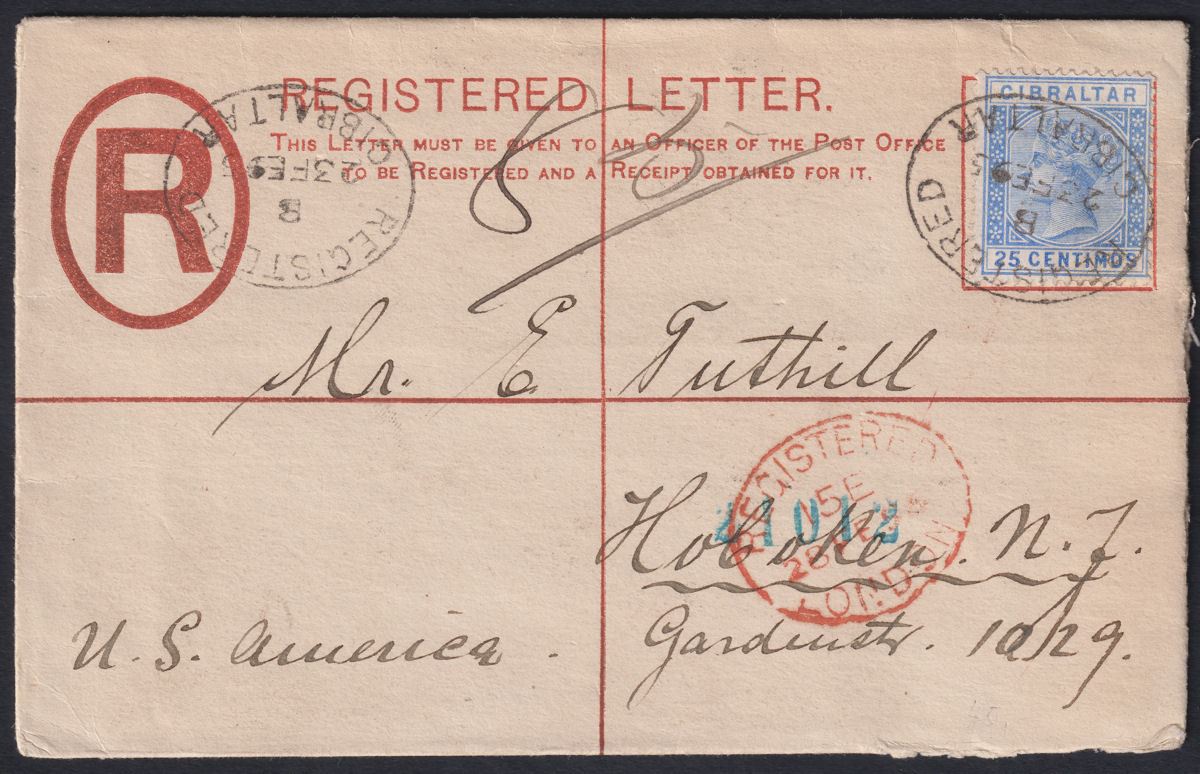 R
REGISTERED LETTER.
THIS LETTER MUST BE GIVEN TO AN OFFICER OF THE POST OFFICE
TO BE REGISTERED AND A RECEIPT OBTAINED FOR IT.
REGISTERED
B
23 FE 95
GIBRALTAR
GIBRALTAR
25 CENTIMOS
REGISTERED
B
23 FE 95
GIBRALTAR
Mr. E Tuthill
REGISTERED
15 E
28 FE 95
LONDON
41012
Hoboken. N. J.
U. S. America.
Gardenstr. 1029.